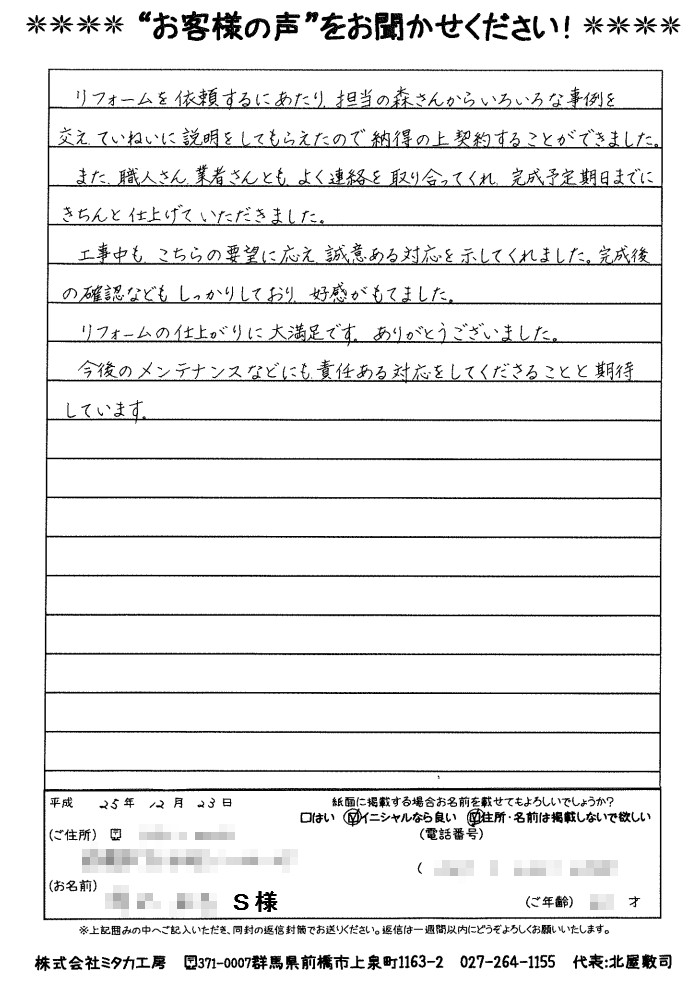 ✳✳✳✳ “お客様の声”をお聞かせください! ✳✳✳✳
リフォームを依頼するにあたり、担当の森さんからいろいろな事例を
交え、ていねいに説明をしてもらえたので納得の上契約することができました。
また、職人さん、業者さんとも、よく連絡を取り合ってくれ、完成予定期日までに
きちんと仕上げていただきました。
工事中も、こちらの要望に応え、誠意ある対応を示してくれました。完成後
の確認などもしっかりしており、好感がもてました。
リフォームの仕上がりに大満足です。ありがとうございました。
今後のメンテナンスなどにも、責任ある対応をしてくださることと期待
しています。
平成 25年 12月 23日 紙面に掲載する場合お名前を載せてもよろしいでしょうか?
□はい ☑イニシャルなら良い ☑住所・名前は掲載しないで欲しい
(ご住所) 〒 (電話番号)
(
(お名前) S様 (ご年齢) 才
※上記囲みの中へご記入いただき、同封の返信封筒でお送りください。返信は一週間以内にどうぞよろしくお願いいたします。
株式会社ミタカ工房 〒371-0007群馬県前橋市上泉町1163-2 027-264-1155 代表:北屋敷司